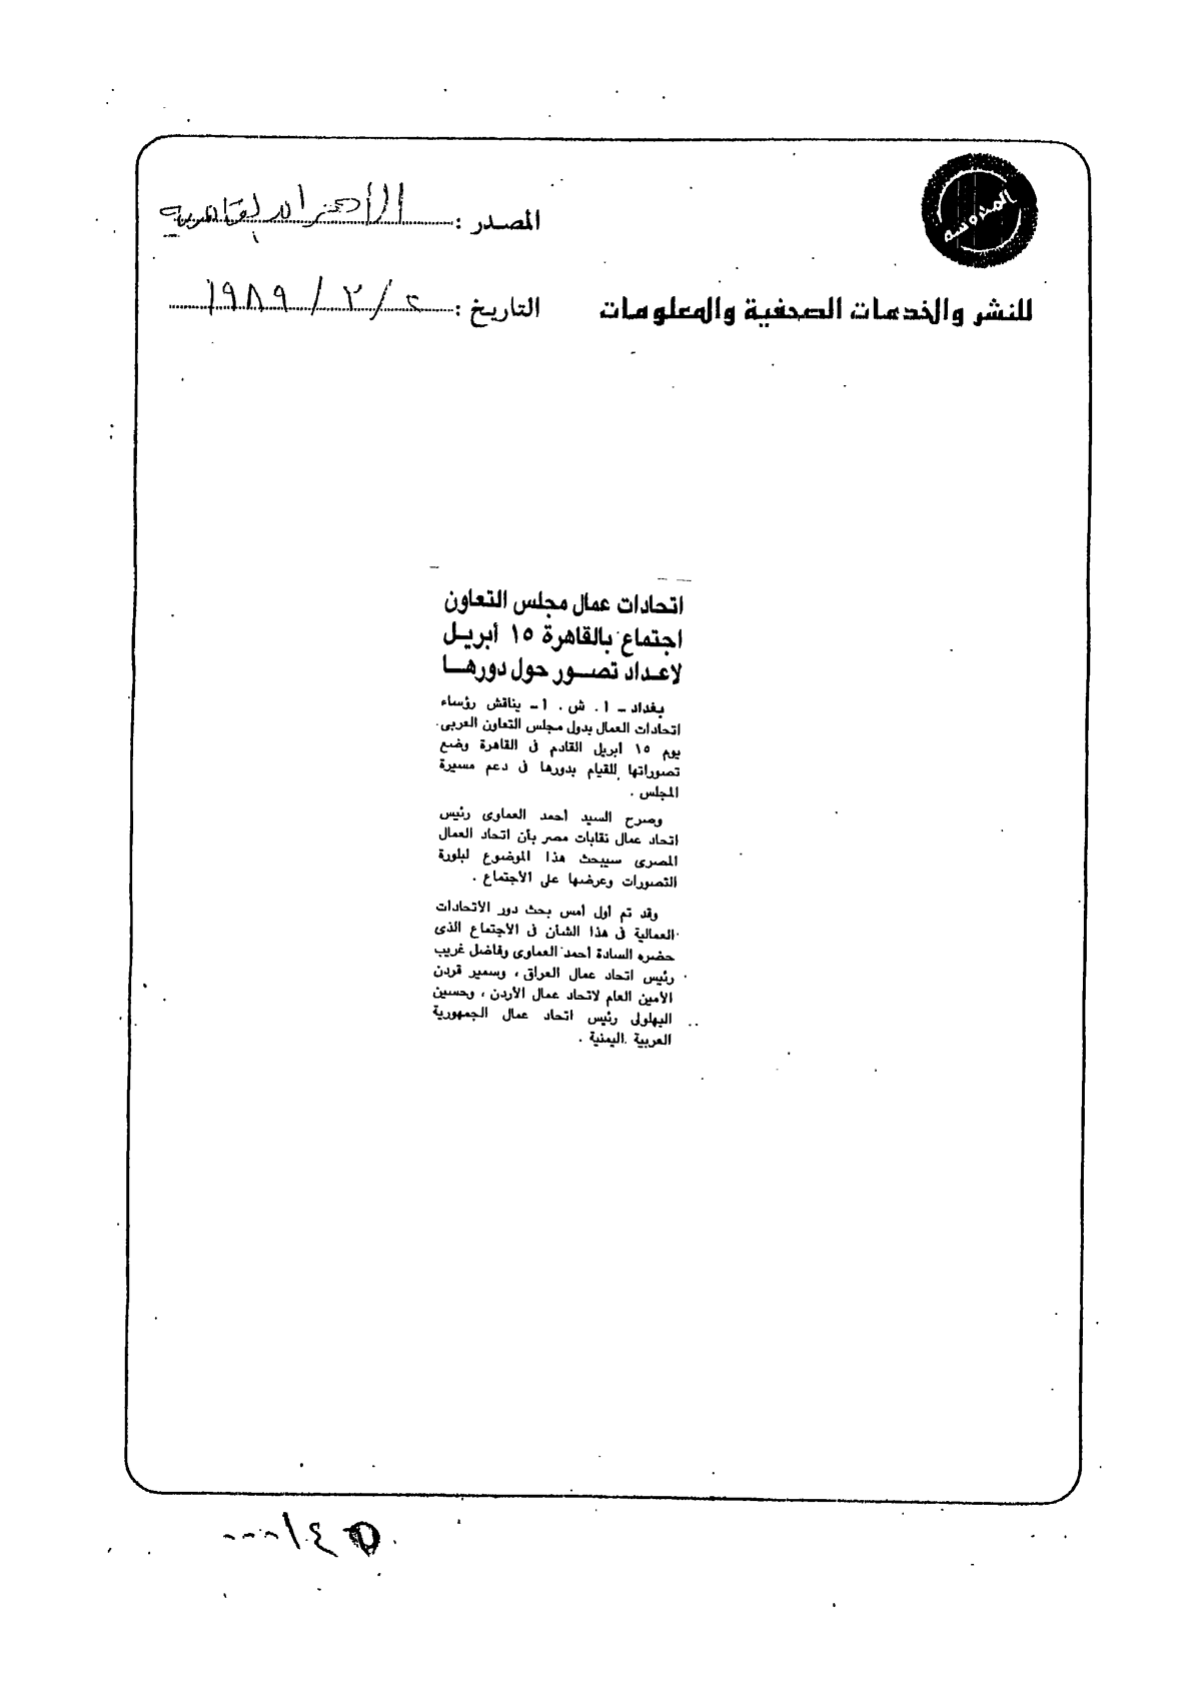 المحروسة
المصدر :
للنشر والخدمات الصحفية والمعلومات
التاريخ : ٢ / ٣ / ١٩٨٩
اتحادات عمال مجلس التعاون
اجتماع بالقاهرة ١٥ أبريل
لاعداد تصور حول دورها
بغداد - ا . ش . ا - يناقش رؤساء
اتحادات العمال بدول مجلس التعاون العربى
يوم ١٥ ابريل القادم فى القاهرة وضع
تصوراتها للقيام بدورها فى دعم مسيرة
المجلس .
وصرح السيد أحمد العماوى رئيس
اتحاد عمال نقابات مصر بأن اتحاد العمال
المصرى سيبحث هذا الموضوع لبلورة
التصورات وعرضها على الأجتماع .
وقد تم أول أمس بحث دور الأتحادات
العمالية فى هذا الشأن فى الأجتماع الذى
حضره السادة أحمد العماوى وفاضل غريب
رئيس اتحاد عمال العراق ، وسمير قردن
الأمين العام لاتحاد عمال الأردن ، وحسين
البهلولى رئيس اتحاد عمال الجمهورية
العربية اليمنية .